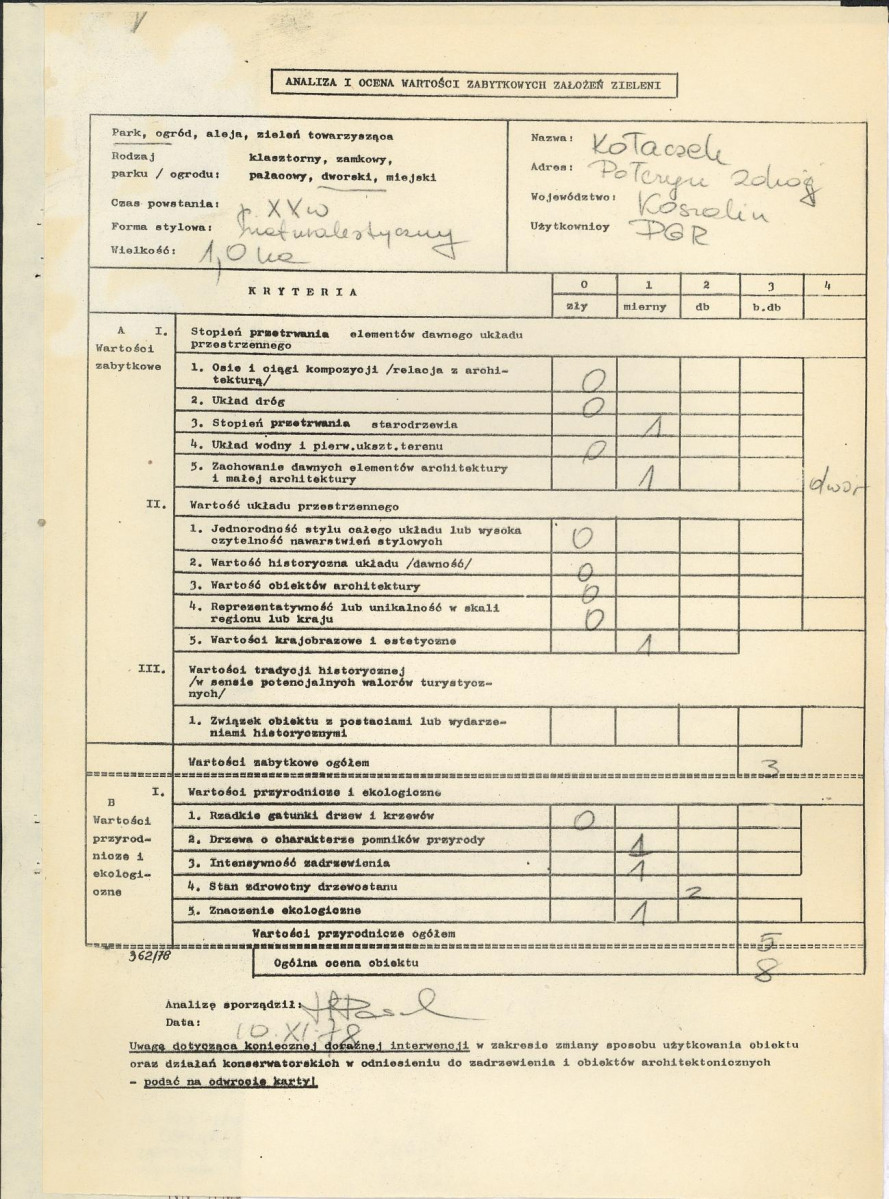 ANALIZA I OCENA WARTOŚCI ZABYTKOWYCH ZAŁOŻEŃ ZIELENI
Park, ogród, aleja, zieleń towarzysząca
Rodzaj parku / ogrodu: klasztorny, zamkowy, pałacowy, dworski, miejski
Czas powstania: p. XX w
Forma stylowa: naturalistyczny
Wielkość: 1,0 ha
Nazwa: Kołaczek
Adres: Połczyn Zdrój
Województwo: Koszalin
Użytkownicy PGR
KRYTERIA 0 1 2 3 4
zły mierny db b.db
A I. Stopień przetrwania elementów dawnego układu
Wartości zabytkowe przestrzennego
1. Osie i ciągi kompozycji /relacja z archi-
tekturą/ 0
2. Układ dróg 0
3. Stopień przetrwania starodrzewia 1
4. Układ wodny i pierw.ukszt.terenu 0
5. Zachowanie dawnych elementów architektury
i małej architektury 1 dwór
II. Wartość układu przestrzennego
1. Jednorodność stylu całego układu lub wysoka
czytelność nawarstwień stylowych 0
2. Wartość historyczna układu /dawność/ 0
3. Wartość obiektów architektury 0
4. Reprezentatywność lub unikalność w skali
regionu lub kraju 0
5. Wartości krajobrazowe i estetyczne 1
III. Wartości tradycji historycznej
/w sensie potencjalnych walorów turystycz-
nych/
1. Związek obiektu z postaciami lub wydarze-
niami historycznymi
Wartości zabytkowe ogółem 3
B I. Wartości przyrodnicze i ekologiczne
Wartości przyrod-
nicze i ekologi-
czne
1. Rzadkie gatunki drzew i krzewów 0
2. Drzewa o charakterze pomników przyrody 1
3. Intensywność zadrzewienia 1
4. Stan zdrowotny drzewostanu 2
5. Znaczenie ekologiczne 1
Wartości przyrodnicze ogółem 5
362/78 Ogólna ocena obiektu 8
Analizę sporządził:
Data: 10.XI.78
Uwagę dotycząca koniecznej doraźnej interwencji w zakresie zmiany sposobu użytkowania obiektu
oraz działań konserwatorskich w odniesieniu do zadrzewienia i obiektów architektonicznych
- podać na odwrocie karty!